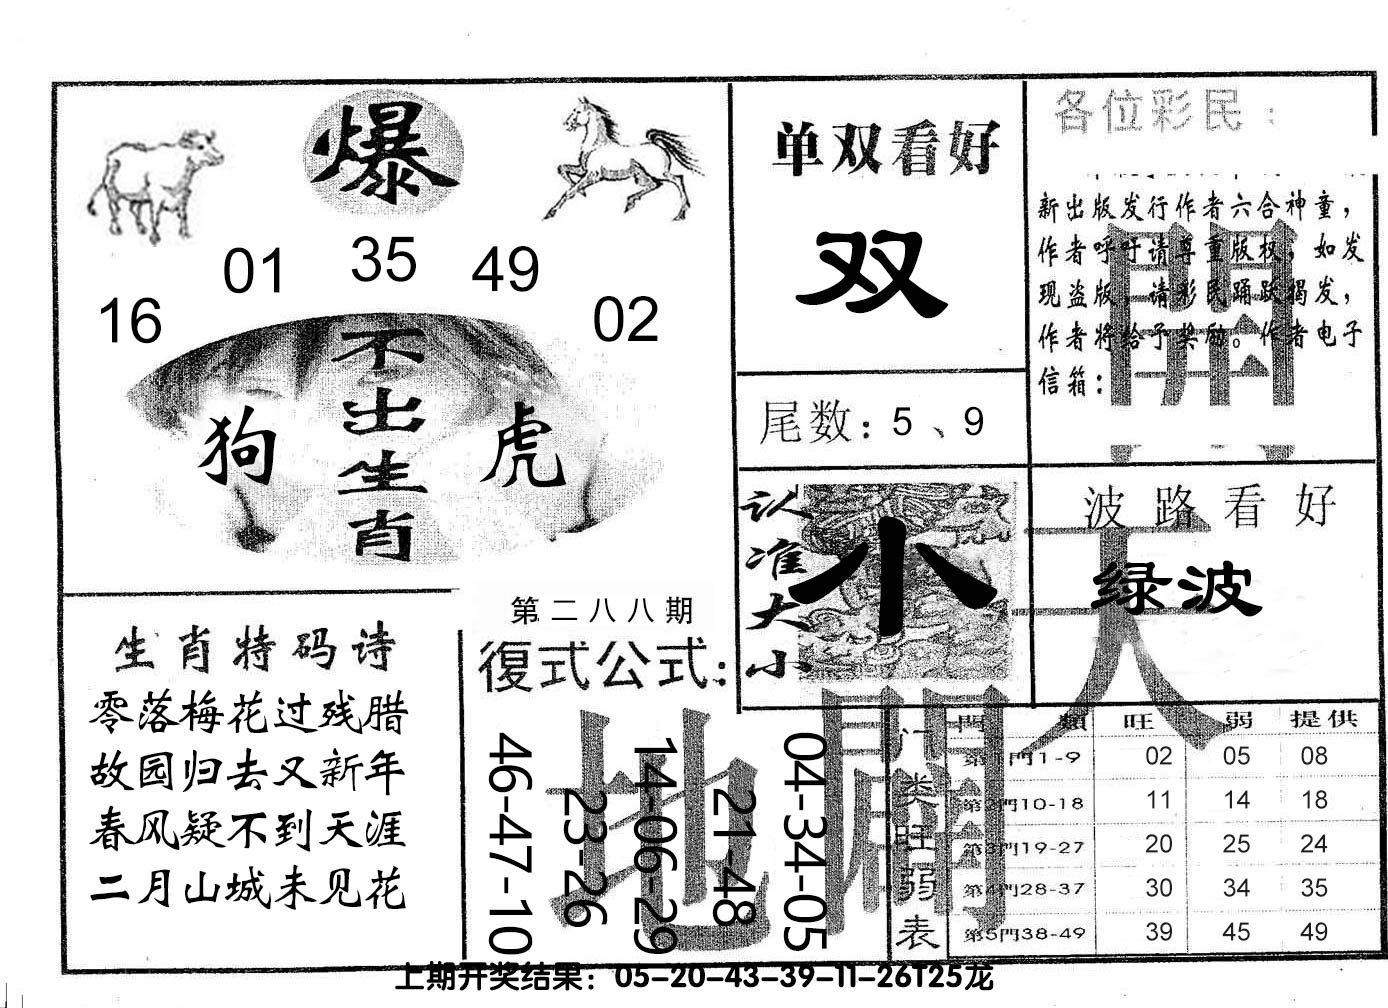 爆
16 01 35 49 02
不出生肖
狗
虎
生肖特码诗
零落梅花过残腊
故园归去又新年
春风疑不到天涯
二月山城未见花
第二八八期
復式公式：
46-47-10
23-26
14-06-29
21-48
04-34-05
单双看好
双
尾数：5、9
认准大小
小
各位彩民：
新出版发行作者六合神童，
作者呼吁请尊重版权，如发
现盗版，请彩民踊跃揭发，
作者将给予奖励。作者电子
信箱：
開
天
波路看好
绿波
地
開
门类旺弱表
門類 旺 弱 提供
第1門1-9 02 05 08
第2門10-18 11 14 18
第3門19-27 20 25 24
第4門28-37 30 34 35
第5門38-49 39 45 49
上期开奖结果：05-20-43-39-11-26T25龙